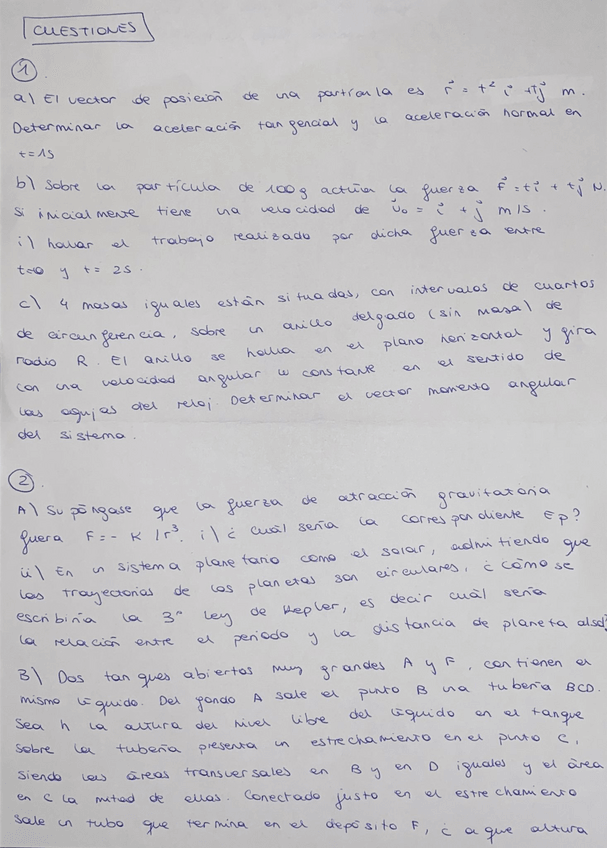 CUESTIONES
①.
a) El vector de posición de una partícula es r⃗ = t² i⃗ + t j⃗ m.
Determinar la aceleración tangencial y la aceleración normal en
t = 1s
b) Sobre la partícula de 100g actúa la fuerza F⃗ = t i⃗ + t j⃗ N.
Si inicialmente tiene una velocidad de v⃗₀ = i⃗ + j⃗ m/s.
i) hallar el trabajo realizado por dicha fuerza entre
t=0 y t= 2s.
c) 4 masas iguales están situadas, con intervalos de cuartos
de circunferencia, sobre un anillo delgado (sin masa) de
radio R. El anillo se halla en el plano horizontal y gira
con una velocidad angular ω constante en el sentido de
las agujas del reloj. Determinar el vector momento angular
del sistema.
②.
A) Supóngase que la fuerza de atracción gravitatoria
fuera F = - K / r³. i) ¿ cuál sería la correspondiente Ep?
ii) En un sistema planetario como el solar, admitiendo que
las trayectorias de los planetas son circulares, ¿ cómo se
escribiría la 3ª Ley de Kepler, es decir cuál sería
la relación entre el periodo y la distancia de planeta al sol?
B) Dos tanques abiertos muy grandes A y F, contienen el
mismo líquido. Del fondo A sale el punto B una tubería BCD.
Sea h la altura del nivel libre del líquido en el tanque
sobre la tubería presenta un estrechamiento en el punto C,
siendo las áreas transversales en B y en D iguales y el área
en C la mitad de ellas. Conectado justo en el estrechamiento
sale un tubo que termina en el depósito F, ¿ a que altura